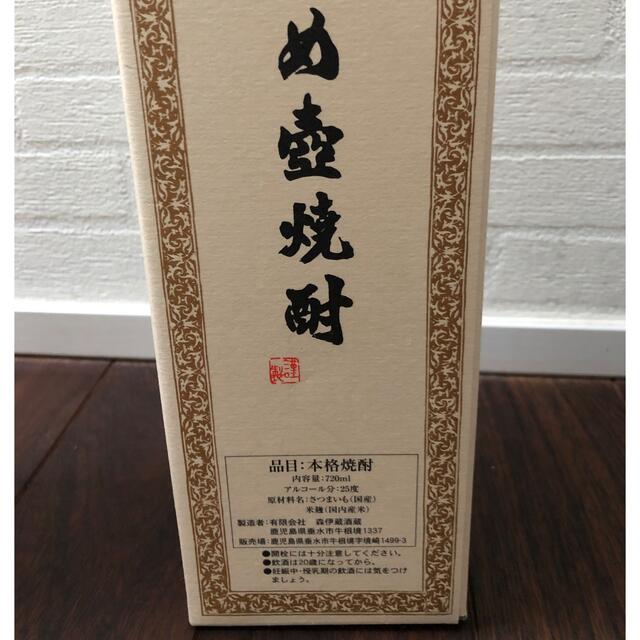 め壺焼酎
謹製
品目：本格焼酎
内容量：720ml
アルコール分：25度
原材料名：さつまいも(国産)
米麹(国内産米)
製造者：有限会社　森伊蔵酒蔵
鹿児島県垂水市牛根境1337
販売場：鹿児島県垂水市牛根境字境崎1499-3
●開栓には十分注意してください。
●飲酒は20歳になってから。
●妊娠中・授乳期の飲酒には気をつけ
ましょう。